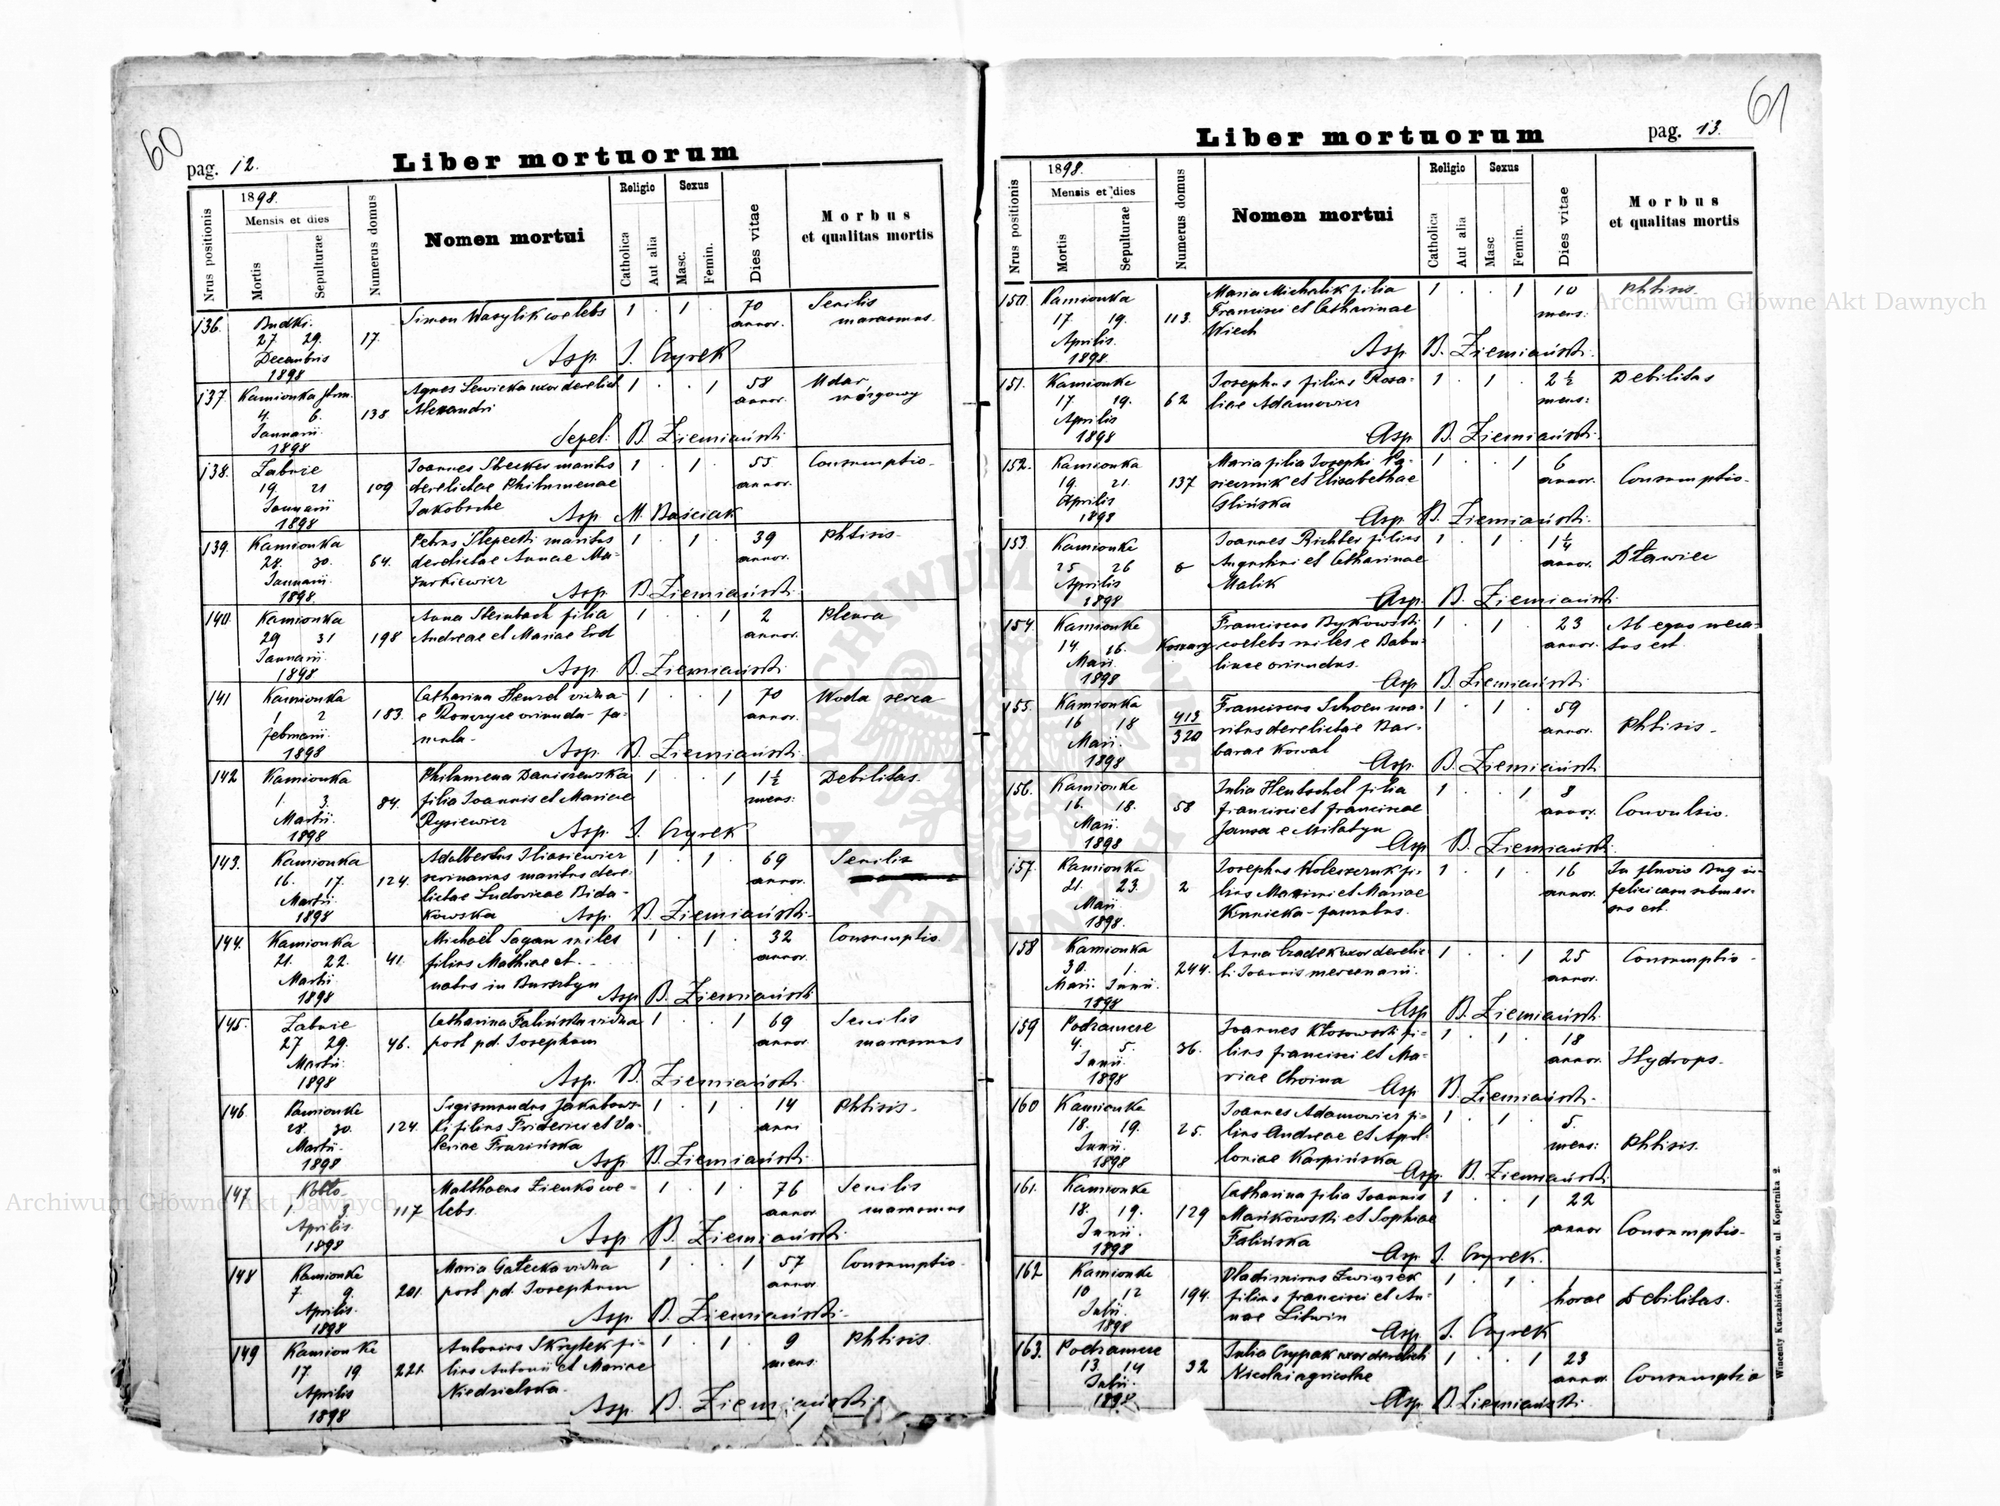 60
pag. 12.
Liber mortuorum
Nrus positionis
1898.
Mensis et dies
Mortis
Sepulturae
Numerus domus
Nomen mortui
Religio
Catholica
Aut alia
Sexus
Masc.
Femin.
Dies vitae
Morbus
et qualitas mortis
136. Budki. Simon Wasylik coelebs 1 . 1 . 70 Senilis
27 29. 17. annor. marasmus.
Decembris
1898 Asp. J. Czyrek
137. Kamionka Agnes Lewicka uxor derelict. 1 . . 1 58 Udar
4. 6. 138 Alexandri annor. mózgowy
Januarii
1898 Sepel. B. Ziemiański
138. Łabacie Joannes Stecker maritus 1 . 1 . 55 Consumptio.
19. 21 109 derelictae Philumenae annor.
Januarii
1898 Asp. M. Baściak
139. Kamionka Petrus Slepecki maritus 1 . 1 . 39 Phtisis.
28. 30. 64. derelictae Annae Ma- annor.
Januarii zurkiewicz
1898. Asp. B. Ziemiański
140. Kamionka Anna Steinbach filia 1 . . 1 2 Pleura
29 31 198 Andreae et Mariae Erd annor.
Januarii
1898 Asp. B. Ziemiański
141 Kamionka Catharina Henzel vidua 1 . . 1 70 Woda serca
1 2 183. oriunda - fa- annor.
februarii mula.
1898 Asp. B. Ziemiański
142 Kamionka Philumena Daniszewska 1 . . 1 1½ Debilitas.
1. 3. 84. filia Joannis et Mariae mens:
Martii Rysiewicz
1898 Asp. J. Czyrek
143. Kamionka Adalbertus Iliasiewicz 1 . 1 . 69 Senilis
16. 17. 124. maritus dere- annor.
Martii lictae Ludovicae Bida-
1898 kowska Asp. B. Ziemiański
144. Kamionka Michaël Sagan miles 1 . 1 . 32 Consumptio.
21. 22. 41. filius Mathiae et annor.
Martii natus in Bursztyn
1898 Asp. B. Ziemiański
145. Catharina Falińska vidua 1 . . 1 69 Senilis
27 29. 46. post pd. Josephum annor. marasmus
Martii
1898 Asp. B. Ziemiański
146 Kamionka Sigismundus Jakubows- 1 . 1 . 14 Phtisis.
28. 30. 124. ki filius Friderici et Va- anni
Martii leriae Frazińska
1898 Asp. B. Ziemiański
147 Matthaeus Zienko coe- 1 . 1 . 76 Senilis
1 3. 117 lebs. annor marasmus
Aprilis.
1898 Asp. B. Ziemiański
148 Kamionka Maria Gałecka vidua 1 . . 1 57 Consumptio.
7 9. 201. post pd. Josephum annor
Aprilis.
1898 Asp. B. Ziemiański
149 Kamionka Antonius Skrytek fi- 1 . 1 . 9 Phtisis.
17 19. 221. lius Antonii et Mariae mens.
Aprilis Niedzielska.
1898 Asp. B. Ziemiański
61
Liber mortuorum
pag. 13.
Nrus positionis
1898.
Mensis et dies
Mortis
Sepulturae
Numerus domus
Nomen mortui
Religio
Catholica
Aut alia
Sexus
Masc
Femin.
Dies vitae
Morbus
et qualitas mortis
150. Kamionka Maria Michalik filia 1 . . 1 10 Phtisis.
17. 19. 113. Francisci et Catharinae mens:
Aprilis. Wiech
1898. Asp B. Ziemiański.
151. Kamionke Josephus filius Rosa- 1 . 1 . 2½ Debilitas
17. 19. 62 liae Adamowicz mens:
Aprilis
1898 Asp B. Ziemiański.
152. Kamionka Maria filia Josephi Pa- 1 . . 1 6 Consumptio.
19. 21. 137 siecznik et Elisabethae annor.
Aprilis Glińska
1898 Asp. B. Ziemiański.
153. Kamionke Joannes Richter filius 1 . 1 . 1¼ Dławiec
25 26 6 Augustini et Catharinae annor.
Aprilis Malik
1898 Asp. B. Ziemiański
154. Kamionke Franciscus Bykowski 1 . 1 . 23 Ab equo neca-
14 16. Koszary coelebs miles e Babu- annor. tus est.
Maii. lince oriundus.
1898 Asp B. Ziemiański
155. Kamionka Franciscus Schoen ma- 1 . 1 . 59 Phtisis.
16 18 413 ritus derelictae Bar- annor.
Maii. 320 barae Kowal
1898 Asp. B. Ziemiański
156. Kamionke Julia Hentschel filia 1 . . 1 8 Convulsio.
16. 18. 58 francisci et franciscae annor.
Maii. Jansa e Milatyn
1898 Asp B. Ziemiański.
157. Kamionka Josephus Koleszczuk fi- 1 . 1 . 16 In fluvio Bug in-
21. 23. 2 lius Maximi et Mariae annor. felici casu submer-
Maii Kunicka - famulus. sus est.
1898.
158 Kamionka Anna Czadek uxor derelic- 1 . . 1 25 Consumptio.
30. 1. 244. ti Joannis mercenarii. annor.
Maii. Junii.
1898 Asp B. Ziemiański.
159 Podzamcze Joannes Kłosowski fi- 1 . 1 . 18 Hydrops.
4. 5. 36. lius francisci et Ma- annor.
Junii. riae Choina
1898 Asp B. Ziemiański.
160 Kamionke Joannes Adamowicz fi- 1 . 1 . 5. Phtisis.
18. 19. 25. lius Andreae et Apol- mens:
Junii. loniae Karpińska
1898 Asp. B. Ziemiański
161. Kamionke Catharina filia Joannis 1 . . 1 22 Consumptio.
18. 19. 129 Mańkowski et Sophiae annor
Junii. Falińska
1898 Asp. J. Czyrek.
162 Kamionke Vladimirus Związek 1 . 1 . 1 Debilitas.
10 12 194. filius francisci et An- horae
Julii. nae Litwin
1898 Asp. J. Czyrek
163. Podzamcze Julia Czypak uxor derelicti 1 . . 1 23 Consumptio
13. 14 32 agricolae annor.
Julii.
1898. Asp. B. Ziemiański.
Wincenty Kuczabiński, Lwów, ul. Kopernika 2.
Archiwum Główne Akt Dawnych
Archiwum Główne Akt Dawnych
ARCHIWUM GŁÓWNE AKT DAWNYCH